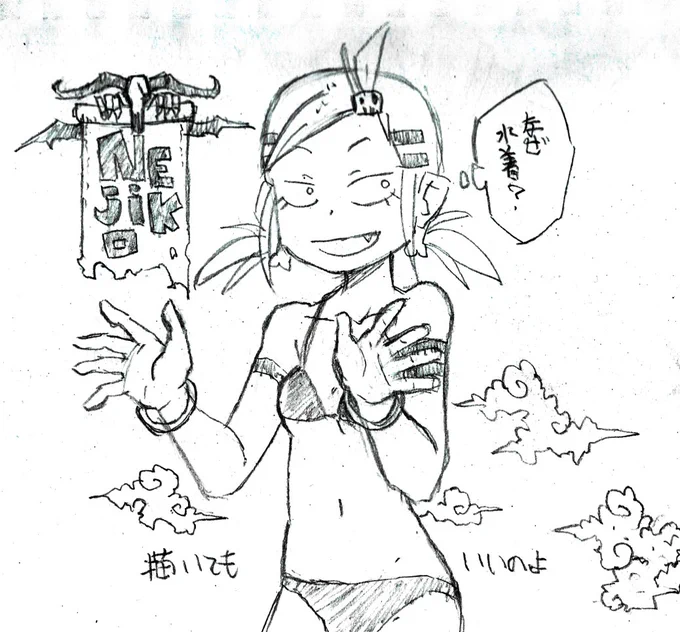 Ne
jik
o
なぜ
水着？
描いても
いいのよ